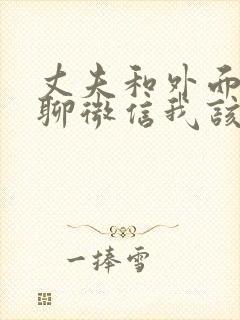 丈夫和外而
聊微信我該
一捧雪